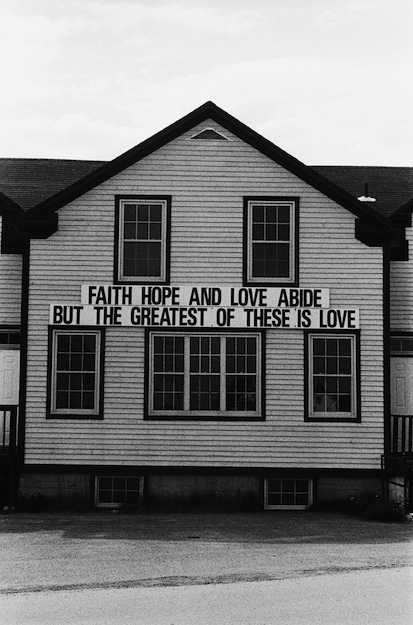 FAITH HOPE AND LOVE ABIDE
BUT THE GREATEST OF THESE IS LOVE